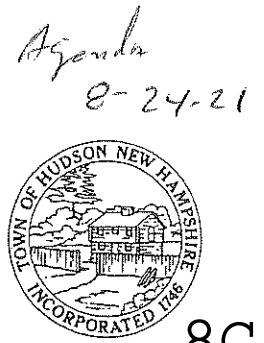 Agenda
8-24-21
TOWN OF HUDSON NEW HAMPSHIRE
INCORPORATED 1746
8C